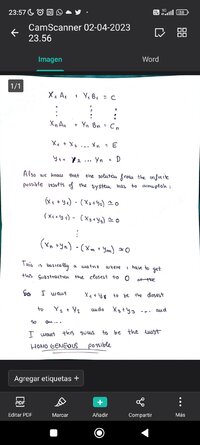 23:57
CamScanner 02-04-2023
23.56
Imagen Word
1/1
X₁ A₁ + Y₁ B₁ = C
⋮ ⋮ ⋮
Xn An + Yn Bn = Cn
X₁ + X₂ ... Xn = E
Y₁ + Y₂ ... Yn = D
Also we know that the solution from the infinite
possible results of the system has to accomplish:
(X₁ + Y₁) - (X₂+Y₂) ≃ 0
(X₁ + Y₁) - (X₃+Y₃) ≃ 0
⋮
(Xn + Yn) - (Xm + Ym) ≃ 0
This is basically a matrix where i have to get
this substraction the closest to 0
So I want X₁ + Y₁ to be the closest
to X₂ + Y₂ and X₃+Y₃ ... and
so on...
I want this sums to be the most
HOMOGENEOUS possible
Agregar etiquetas +
PDF
Editar PDF Marcar Añadir Compartir Más